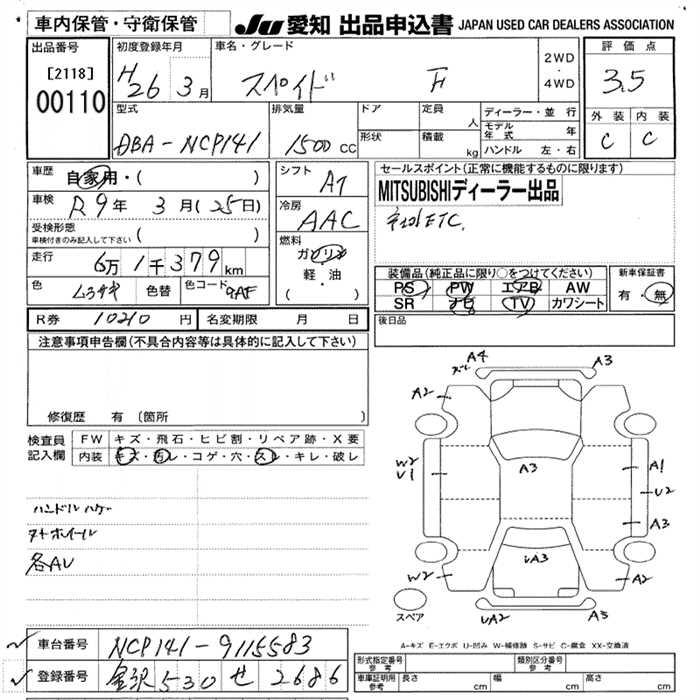 車内保管・守衛保管
JU 愛知 出品申込書 JAPAN USED CAR DEALERS ASSOCIATION
出品番号
[2118]
00110
初度登録年月
H26 3月
車名・グレード
スペイド F
2WD
・
4WD
評価点
3.5
外装 内装
C C
型式
DBA-NCP141
排気量
1500 CC
ドア
形状
定員 人
積載 kg
ディーラー・並行
モデル年式 年
ハンドル 左・右
車歴 自家用・( )
車検 R9年 3月(25日)
受検形態
車検付きのみ記入して下さい ( )
走行 6万1千379km
色
色替
色コード 9AF
シフト AT
冷房 AAC
燃料
ガソリン
軽・油
( )
セールスポイント(正常に機能するものに限ります)
MITSUBISHIディーラー出品
ETC.
装備品(純正品に限り○をつけてください)
PS PW エアB AW
SR ナビ TV カワシート
新車保証書
有・無
後日品
R券 10210円 名変期限 月 日
注意事項申告欄(不具合内容等は具体的に記入して下さい)
修復歴 有 (箇所
検査員記入欄
FW キズ・飛石・ヒビ割・リペア跡・X要
内装 キズ・汚レ・コゲ・穴・スレ・キレ・破レ
ハンドルハゲ
タホイール
各AU
A4
ズレ
A3
A2
A3
W2
U1
A1
U2
A3
UA3
W2
A2
UA2
A3
スペア
A-キズ E-エクボ U-凹み W-補修跡 S-サビ C-腐食 XX-交換済
車台番号 NCP141-9115583
登録番号 金沢 530 せ 2686
型式指定番号 参考
類別区分番号 参考
車庫証明用 参考 長さ cm 幅 cm 高さ cm